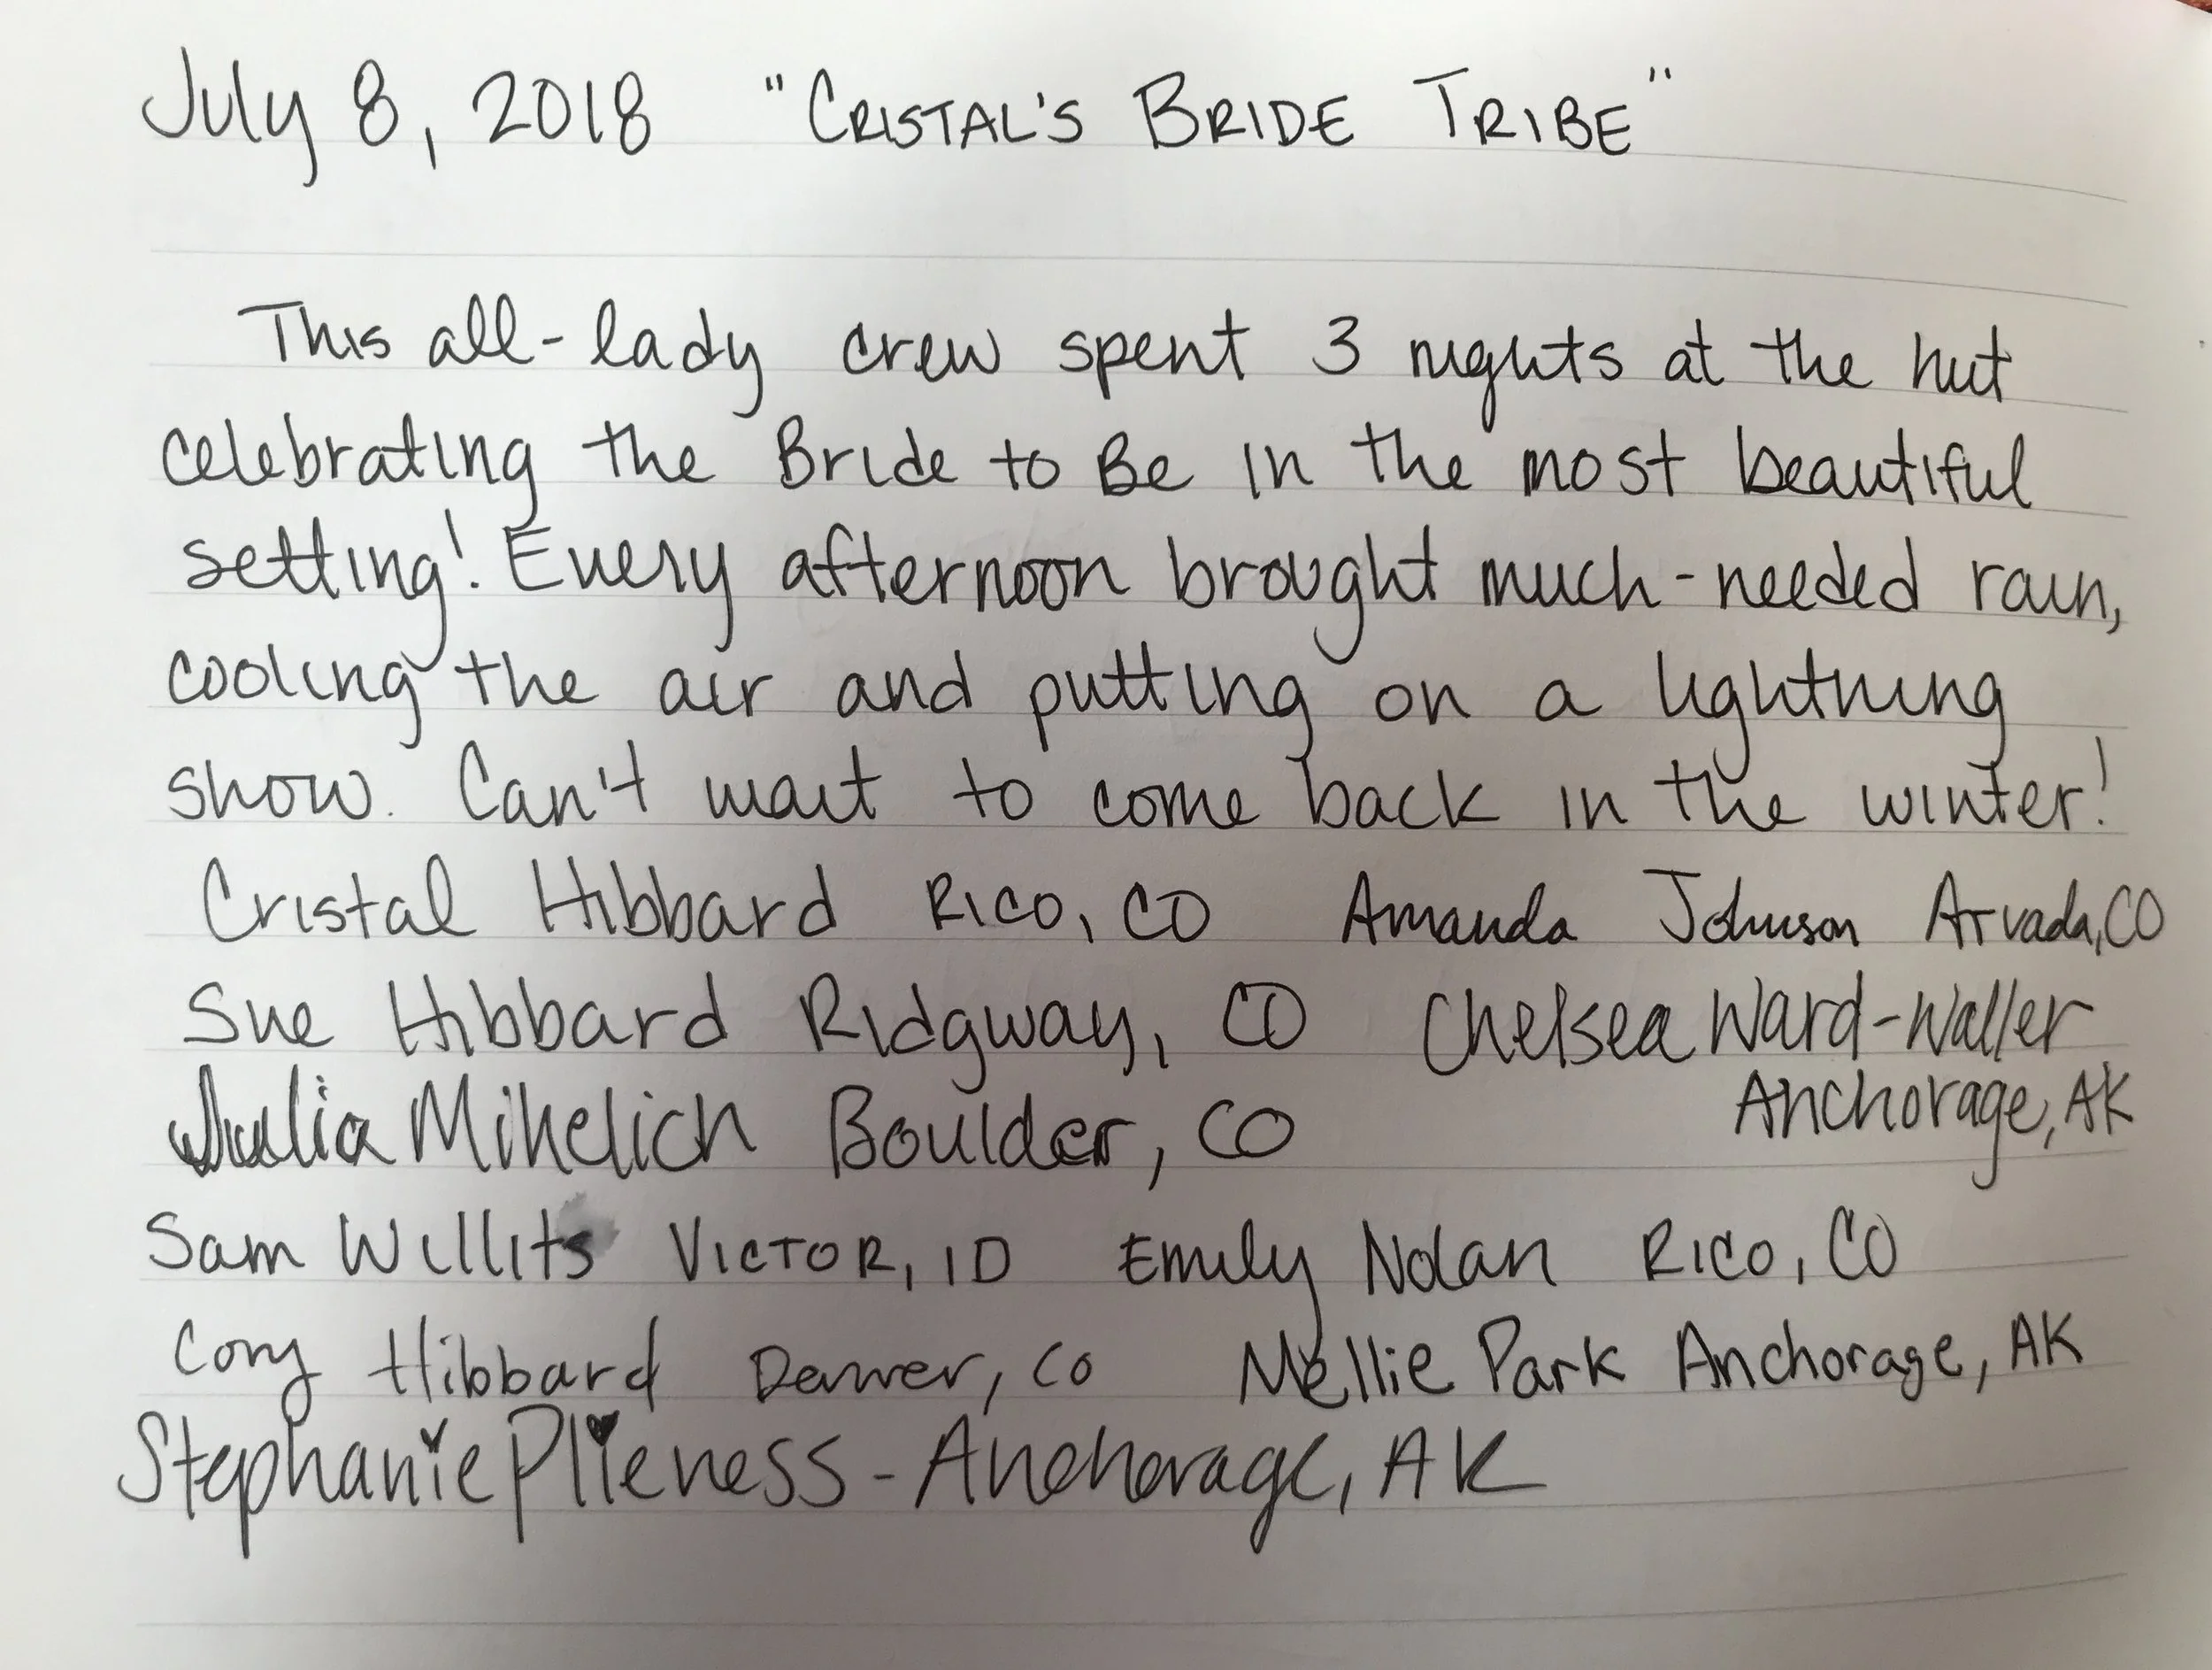 July 8, 2018 "CRISTAL'S BRIDE TRIBE"
This all-lady crew spent 3 nights at the hut
celebrating the Bride to Be in the most beautiful
setting! Every afternoon brought much-needed rain,
cooling the air and putting on a lightning
show. Can't wait to come back in the winter!
Cristal Hibbard Rico, CO Amanda Johnson Arvada, CO
Sue Hibbard Ridgway, CO Chelsea Ward-Waller
Anchorage, AK
Julia Mihelich Boulder, CO
Sam Willits VICTOR, ID Emily Nolan Rico, CO
Cory Hibbard Denver, CO Mellie Park Anchorage, AK
Stephanie Plieness - Anchorage, AK